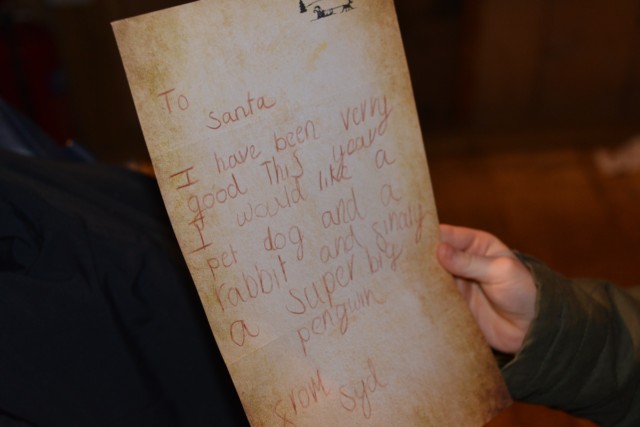 To
Santa
I have been verry
good This year
I would like a
pet dog and a
rabbit and finaly
a super big
penguin
from Syd